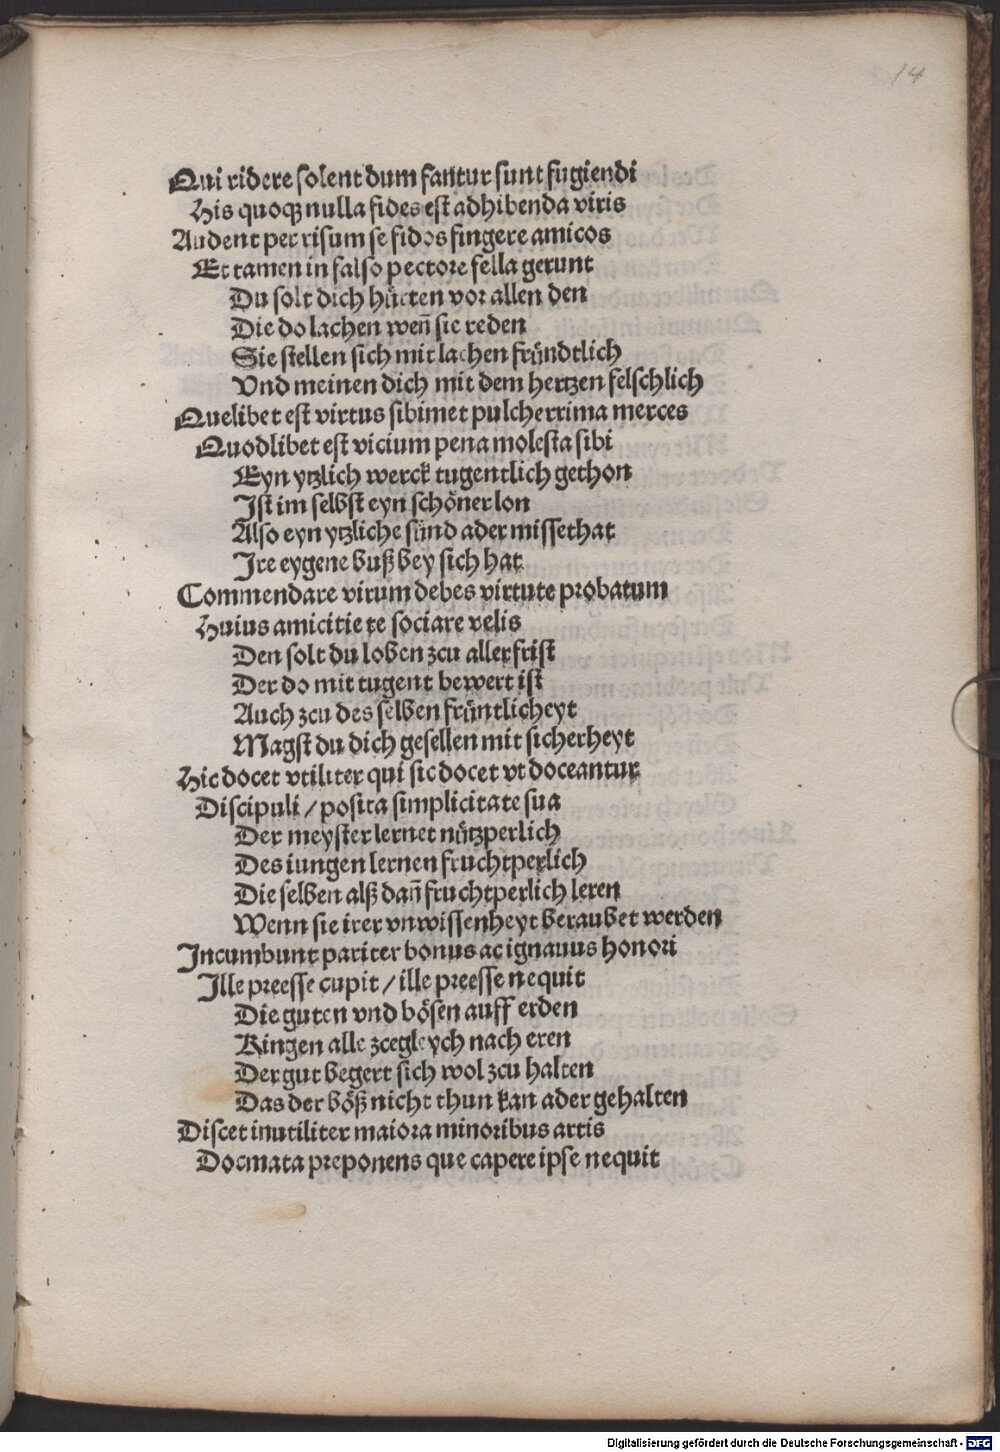 14
Qui ridere solent dum fantur sunt fugiendi
His quoqꝫ nulla fides est adhibenda viris
Audent per risum se fidos fingere amicos
Et tamen in falso pectore fella gerunt
Du solt dich hüeten vor allen den
Die do lachen weñ sie reden
Sie stellen sich mit lachen fründtlich
Vnd meinen dich mit dem hertzen felschlich
Quelibet est virtus sibimet pulcherrima merces
Quodlibet est vicium pena molesta sibi
Eyn ytzlich werck tugentlich gethon
Ist im selbst eyn schöner lon
Also eyn ytzliche sünd ader missethat
Ire eygene buß bey sich hat
Commendare virum debes virtute probatum
Huius amicitie te sociare velis
Den solt du loben zcu aller frist
Der do mit tugent bewert ist
Auch zcu des selben früntlicheyt
Magst du dich gesellen mit sicherheyt
Hic docet vtiliter qui sic docet vt doceantur
Discipuli / posita simplicitate sua
Der meyster lernet nützperlich
Des iungen lernen fruchtperlich
Die selben alß dañ fruchtperlich leren
Wenn sie irer vnwissenheyt beraubet werden
Incumbunt pariter bonus ac ignauus honori
Ille preesse cupit / ille preesse nequit
Die guten vnd bösen auff erden
Ringen alle zcegleych nach eren
Der gut begert sich wol zcu halten
Das der böß nicht thun kan ader gehalten
Discet inutiliter maiora minoribus artis
Docmata preponens que capere ipse nequit
Digitalisierung gefördert durch die Deutsche Forschungsgemeinschaft - DFG